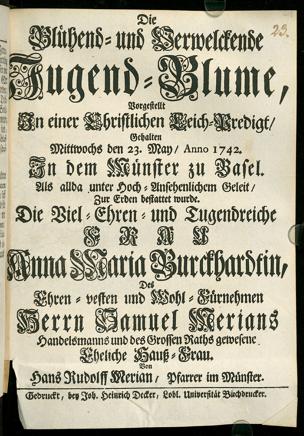 23.
Die
Blühend- und Verwelckende
Jugend-Blume,
Vorgestellt
In einer Christlichen Leich-Predigt/
Gehalten
Mittwochs den 23. May/ Anno 1742.
In dem Münster zu Basel.
Als allda unter Hoch-Ansehenlichem Geleit/
Zur Erden bestattet wurde.
Die Viel-Ehren- und Tugendreiche
FRAU
Anna Maria Burckhardtin,
Des
Ehren-vesten und Wohl-Fürnehmen
Herrn Samuel Merians
Handelsmanns und des Grossen Raths gewesene
Eheliche Hauß-Frau.
Von
Hans Rudolff Merian, Pfarrer im Münster.
Gedruckt, bey Joh. Heinrich Decker, Lobl. Universität Buchdrucker.